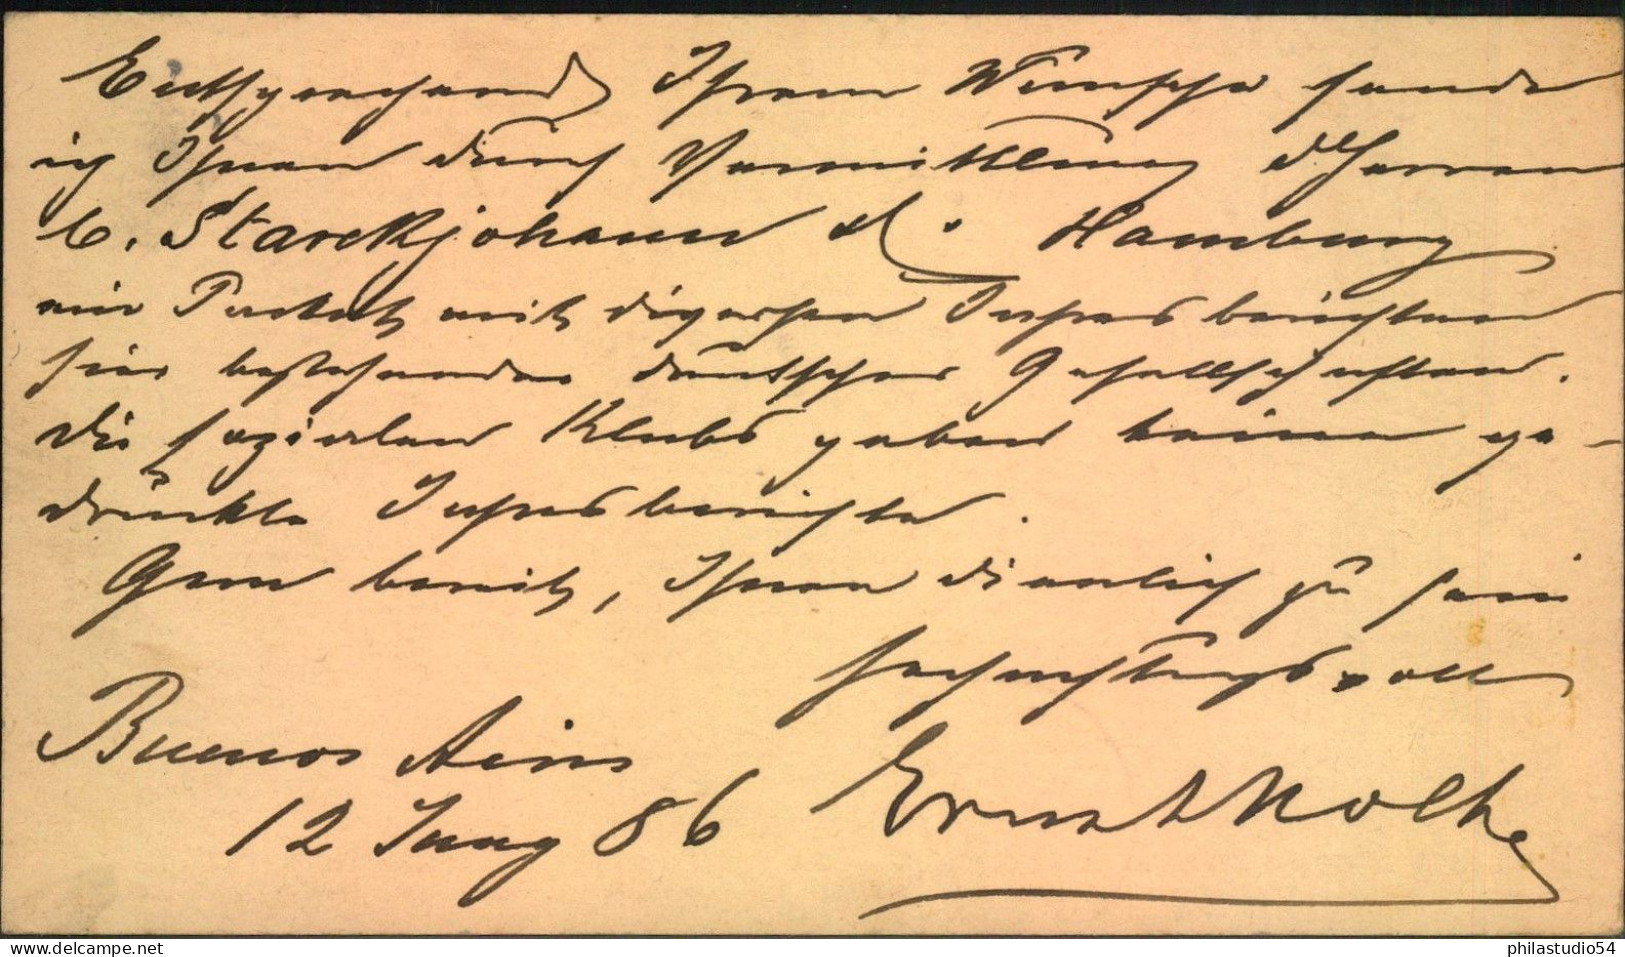 Entsprechend Ihrem Wunsche sende
ich Ihnen durch Vermittlung d Herren
C. Starckjohann & Co. Hamburg
ein Packet mit diversen Jahresberichten
hier bestehender deutscher Gesellschaften.
Die sozialen Klubs geben keine ge-
druckte Jahresberichte.
Gern bereit, Ihnen dienlich zu sein
hochachtungsvoll
Buenos Aires Ernst Nolte
12 Juny 86
philastudio54